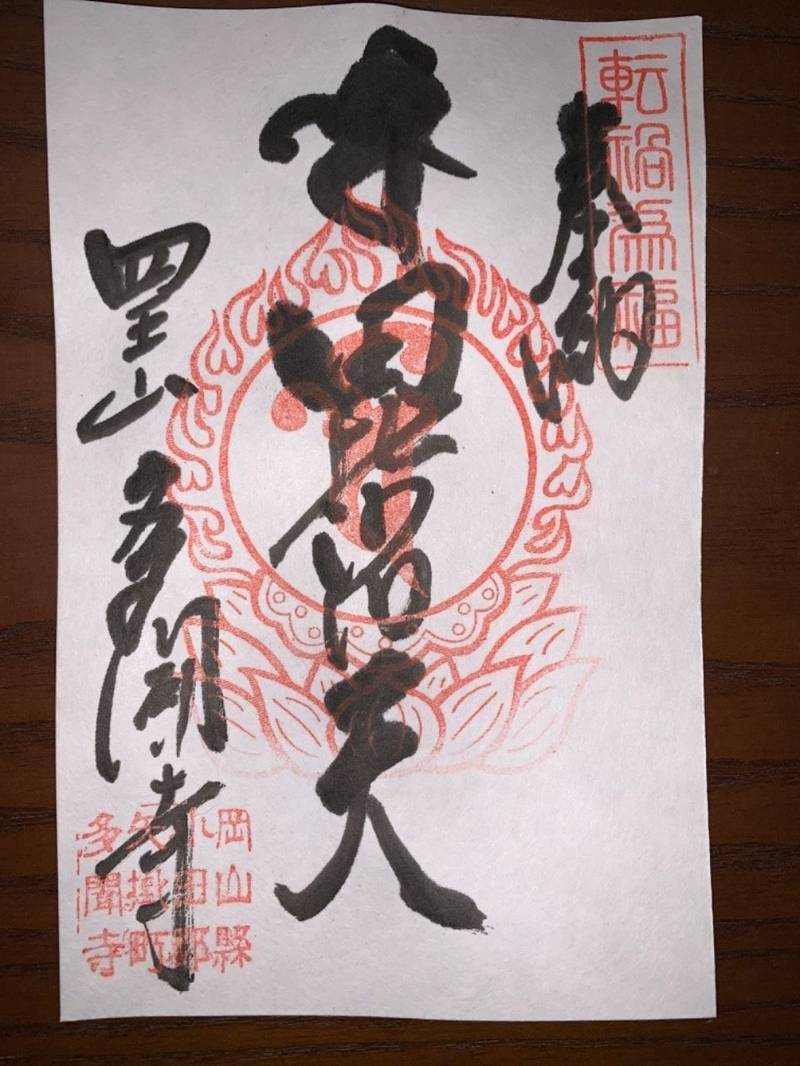 転禍為福
奉納
毘沙門天
罡山 多聞寺
岡山縣
小田郡
矢掛町
多聞寺